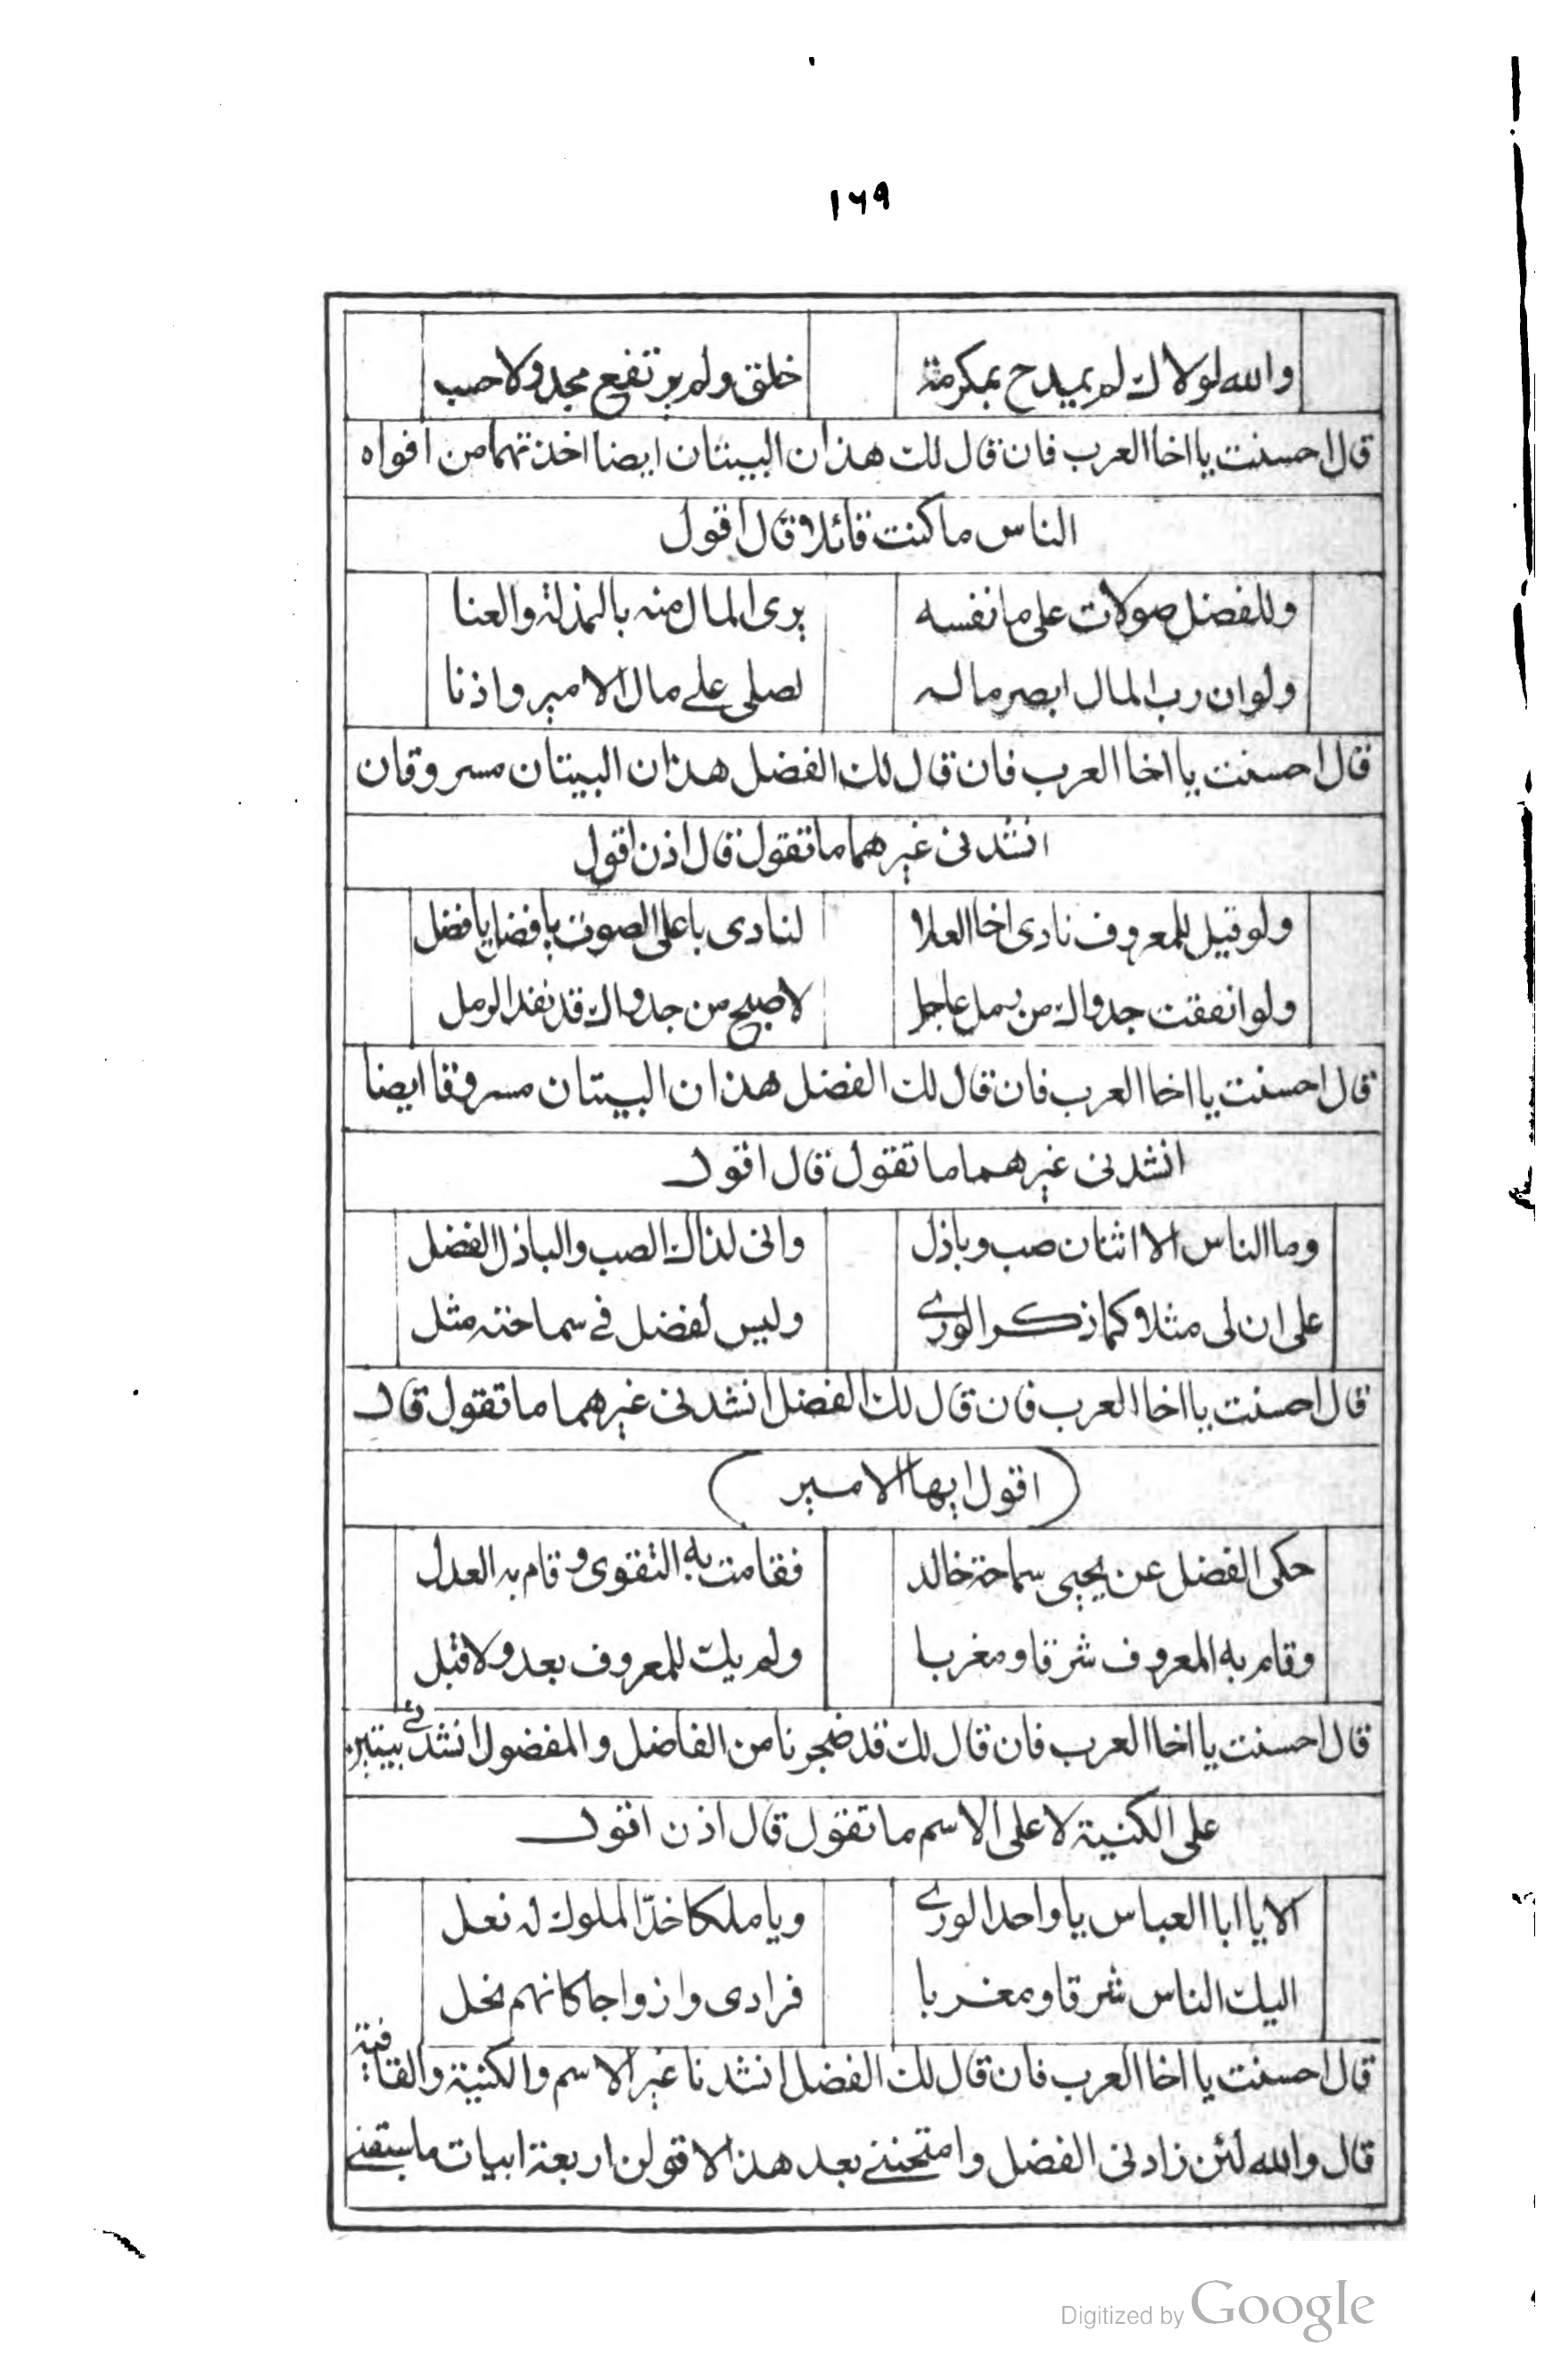 ١٦٩
والله لولاك لم يمدح بمكرمة خلق ولم يرتفع مجد ولا حسب
قال احسنت يا اخا العرب فان قال لك هذان البيتان ايضا اخذتهما من افواه
الناس ما كنت قائلا قال اقول
وللفضل صولات على ما نفسه يرى المال منه بالمذلة والعنا
ولو ان رب المال ابصر ماله لصلى على مال الامير واذنا
قال احسنت يا اخا العرب فان قال لك الفضل هذان البيتان مسروقان
انشدنى غيرهما ما تقول قال اذن اقول
ولو قيل للمعروف نادى اخا العلا لنادى باعلى الصوت يا فضل يا فضل
ولو انفقت جدواك من رمل عاجل لاصبح من جدواك قد نفد الرمل
قال احسنت يا اخا العرب فان قال لك الفضل هذان البيتان مسروقا ايضا
انشدنى غيرهما ما تقول قال اقول
وما الناس الا اثنان صب وباذل وانى لذاك الصب والباذل الفضل
على ان لى مثلا كما ذكر الورى وليس لفضل في سماحته مثل
قال احسنت يا اخا العرب فان قال لك الفضل انشدنى غيرهما ما تقول قال
(اقول ايها الامير)
حكى الفضل عن يحيى سماحة خالد فقامت به التقوى وقام به العدل
وقام به المعروف شرقا ومغربا ولم يك للمعروف بعد ولا قبل
قال احسنت يا اخا العرب فان قال لك قد ضجرنا من الفاضل والمفضول انشدنى بيتين
على الكنية لا على الاسم ما تقول قال اذن اقول
الا يا ابا العباس يا واحد الورى ويا ملكا خد الملوك له نعل
اليك الناس شرقا ومغربا فرادى وازواجا كانهم نحل
قال احسنت يا اخا العرب فان قال لك الفضل انشدنا غير الاسم والكنية والقافية
قال والله لئن زادنى الفضل وامتحننى بعد هذا لاقولن اربعة ابيات ما سبقنى
Digitized by Google